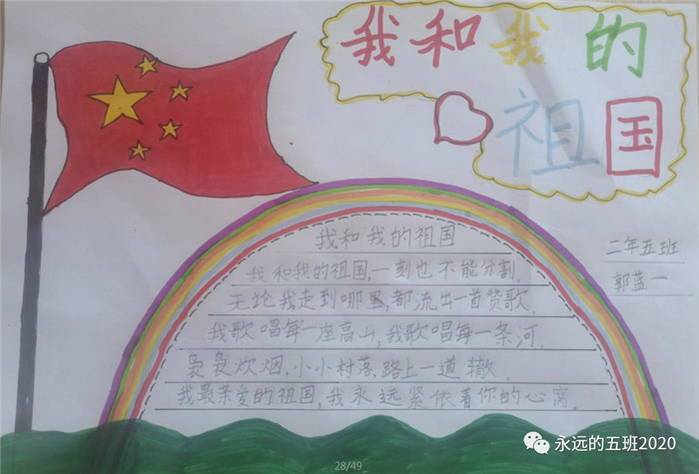 我和我的
祖国
二年五班
郭蓝一
我和我的祖国
我和我的祖国,一刻也不能分割.
无论我走到哪里,都流出一首赞歌.
我歌唱每一座高山,我歌唱每一条河.
袅袅炊烟,小小村落,路上一道辙.
我最亲爱的祖国,我永远紧依着你的心窝.
永远的五班2020
28/49